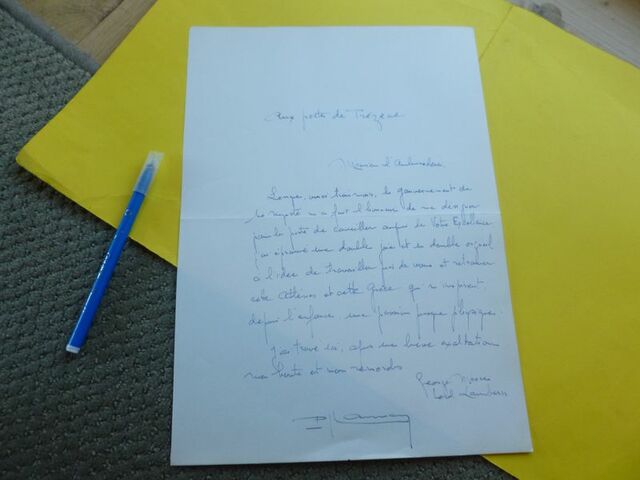 Aux portes de Trézène
Monsieur l'Ambassadeur
Lorsque, voici trois mois, le gouvernement de
Sa Majesté m'a fait l'honneur de me désigner
pour le poste de conseiller auprès de Votre Excellence
j'ai éprouvé une double joie et un double orgueil
à l'idée de travailler près de vous et retrouver
cette Athènes et cette Grèce qui m'inspirent
depuis l'enfance, une passion presque physique.
J'ai trouvé ici, après une brève exaltation
ma honte et mon remords
George
Lord